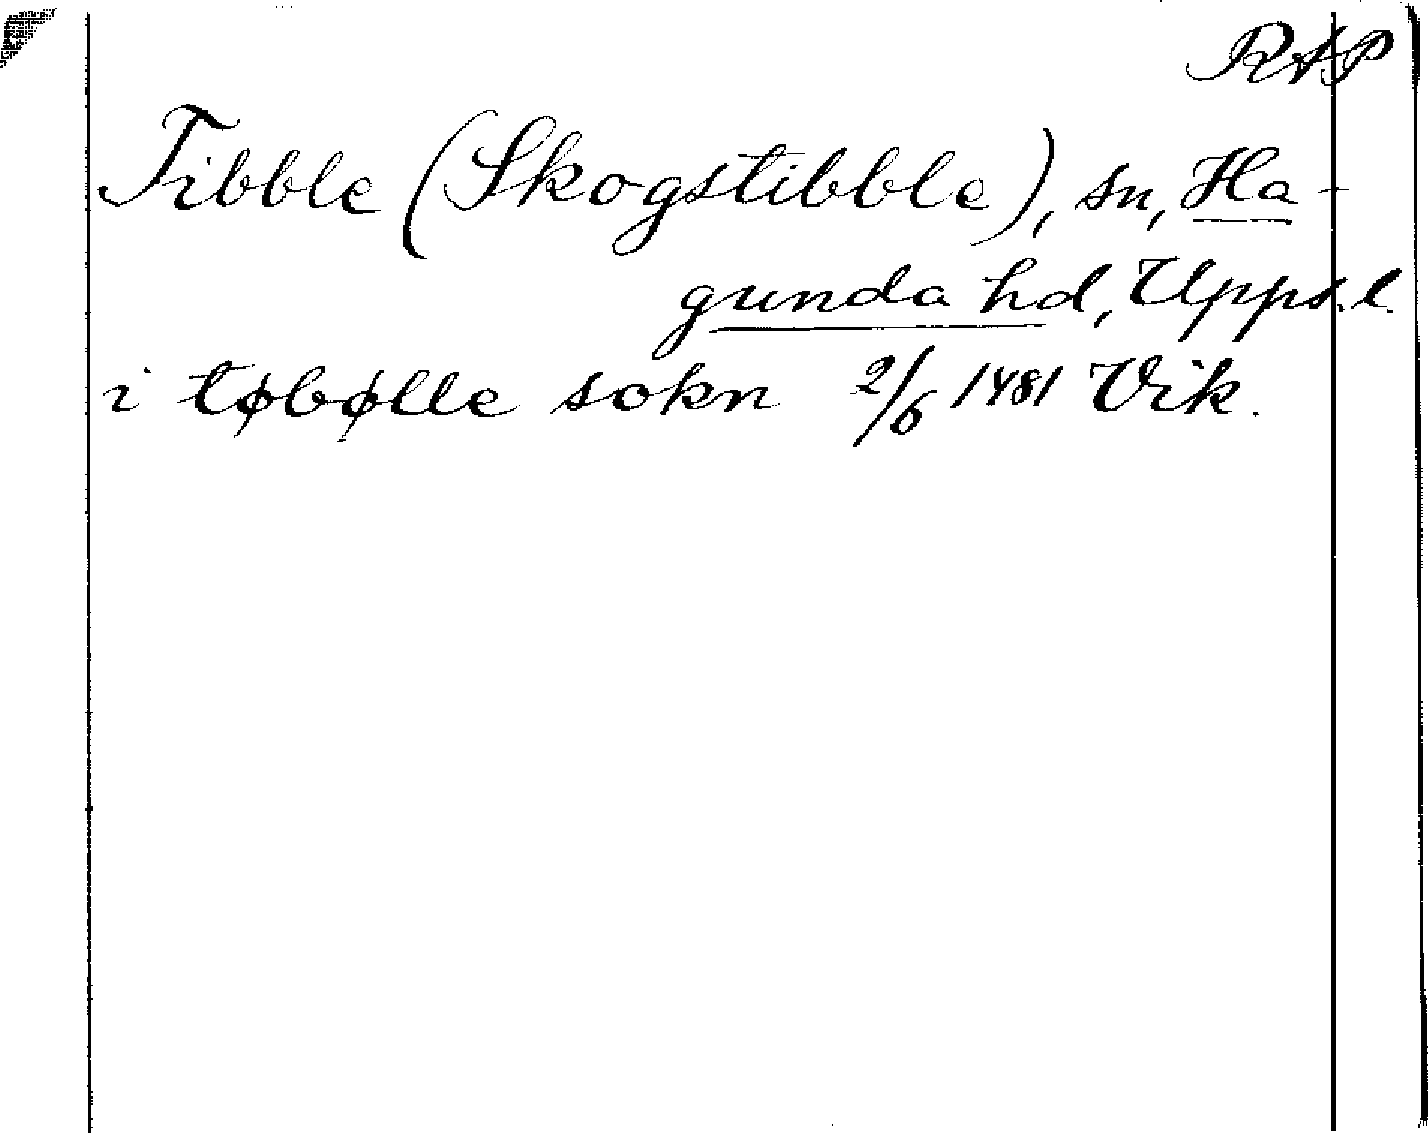 RAP
Tibble (Skogstibble), sn, Ha-
gunda hd, Upps. l.
i tøbølle sokn 2/6 1481 Vik.